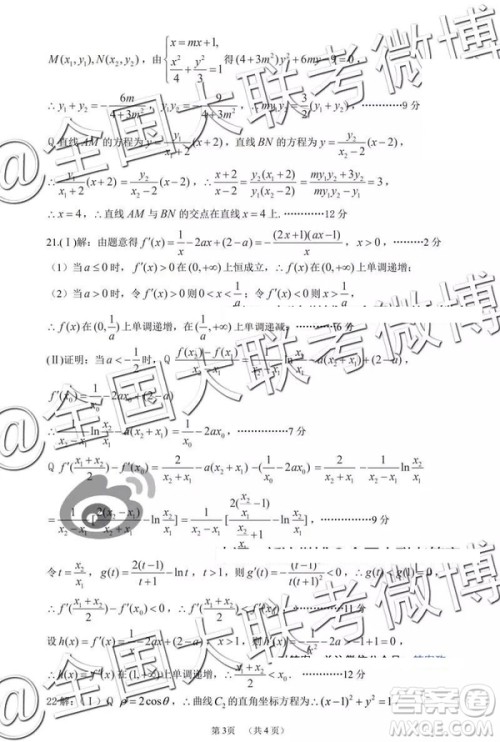 M(x₁,y₁),N(x₂,y₂)，由{x=my+1, x²/4+y²/3=1 得(4+3m²)y²+6my−9=0，
∴y₁+y₂=−6m/(4+3m²)，y₁y₂=−9/(4+3m²)，∴my₁y₂=3/2(y₁+y₂)，…………9分
Q 直线AM的方程为y=y₁/(x₁+2)(x+2)，直线BN的方程为y=y₂/(x₂−2)(x−2)，
∴y₁/(x₁+2)(x+2)=y₂/(x₂−2)(x−2)，∴(x+2)/(x−2)=y₂(x₁+2)/y₁(x₂−2)=(my₁y₂+3y₂)/(my₁y₂−y₁)=3，
∴x=4，∴直线AM与BN的交点在直线x=4上.…………12分
21.(Ⅰ)解：由题意得f′(x)=1/x−2ax+(2−a)=−(2x+1)(ax−1)/x，x>0，………2分
（1）当a≤0时，f′(x)>0在(0,+∞)上恒成立，∴f(x)在(0,+∞)上单调递增；
（2）当a>0时，令f′(x)>0则0<x<1/a；令f′(x)<0则x>1/a，
∴f(x)在(0,1/a)上单调递增，在(1/a,+∞)上单调递减；…………6分
(Ⅱ)证明：当a<−1/2时，Q (f(x₂)−f(x₁))/(x₂−x₁)=1/(x₂−x₁)ln x₂/x₁−a(x₂+x₁)+(2−a)，
f′(x₀)=1/x₀−2ax₀+(2−a)
∴1/(x₂−x₁)ln x₂/x₁−a(x₂+x₁)=1/x₀−2ax₀，……………7分
Q f′((x₁+x₂)/2)−f′(x₀)=2/(x₂+x₁)−a(x₂+x₁)−(1/x₀−2ax₀)=2/(x₂+x₁)−1/(x₂−x₁)ln x₂/x₁
=1/(x₂−x₁)[2(x₂−x₁)/(x₂+x₁)−ln x₂/x₁]=1/(x₂−x₁)[2(x₂/x₁−1)/(x₂/x₁+1)−ln x₂/x₁]，…………9分
令t=x₂/x₁，g(t)=2(t−1)/(t+1)−ln t，t>1，则g′(t)=−(t−1)²/t(t+1)²<0，∴g(t)<g(1)=0，
∴f′((x₁+x₂)/2)−f′(x₀)<0，∴f′((x₁+x₂)/2)<f′(x₀)，……………11分
设h(x)=f′(x)=1/x−2ax+(2−a)，x>1，则h′(x)=−1/x²−2a>−1+1=0，
∴h(x)=f′(x)在(1,+∞)上单调递增，∴(x₁+x₂)/2<x₀.……………12分
22解：（Ⅰ）Q ρ=2cosθ，∴曲线C₂的直角坐标方程为∴(x−1)²+y²=1
第3页 （共4页）
@全国大联考微博
@全国大联考微博
@全国大联考微博